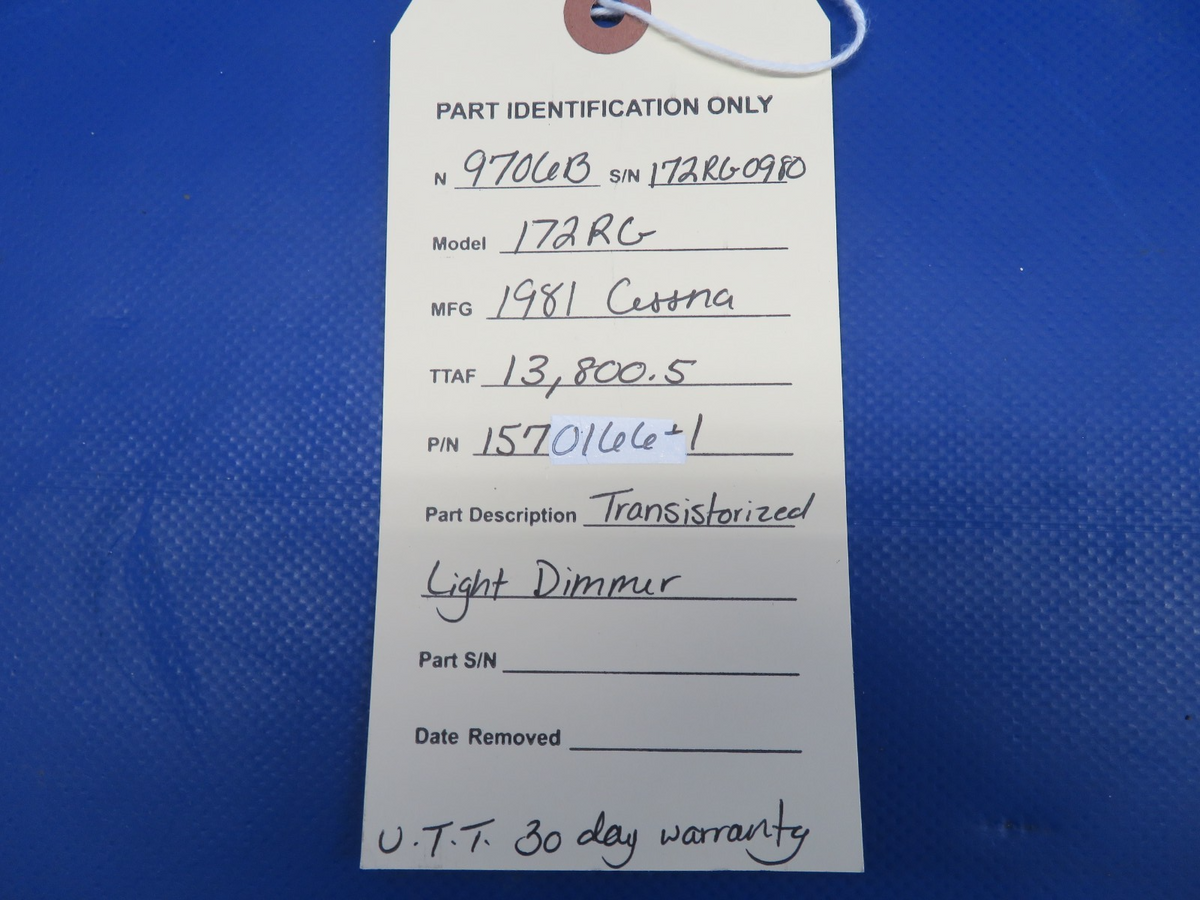 PART IDENTIFICATION ONLY
N 9706B S/N 172RG0980
Model 172RG
MFG 1981 Cessna
TTAF 13,800.5
P/N 1570166-1
Part Description Transistorized
Light Dimmer
Part S/N
Date Removed
U.T.T. 30 day warranty